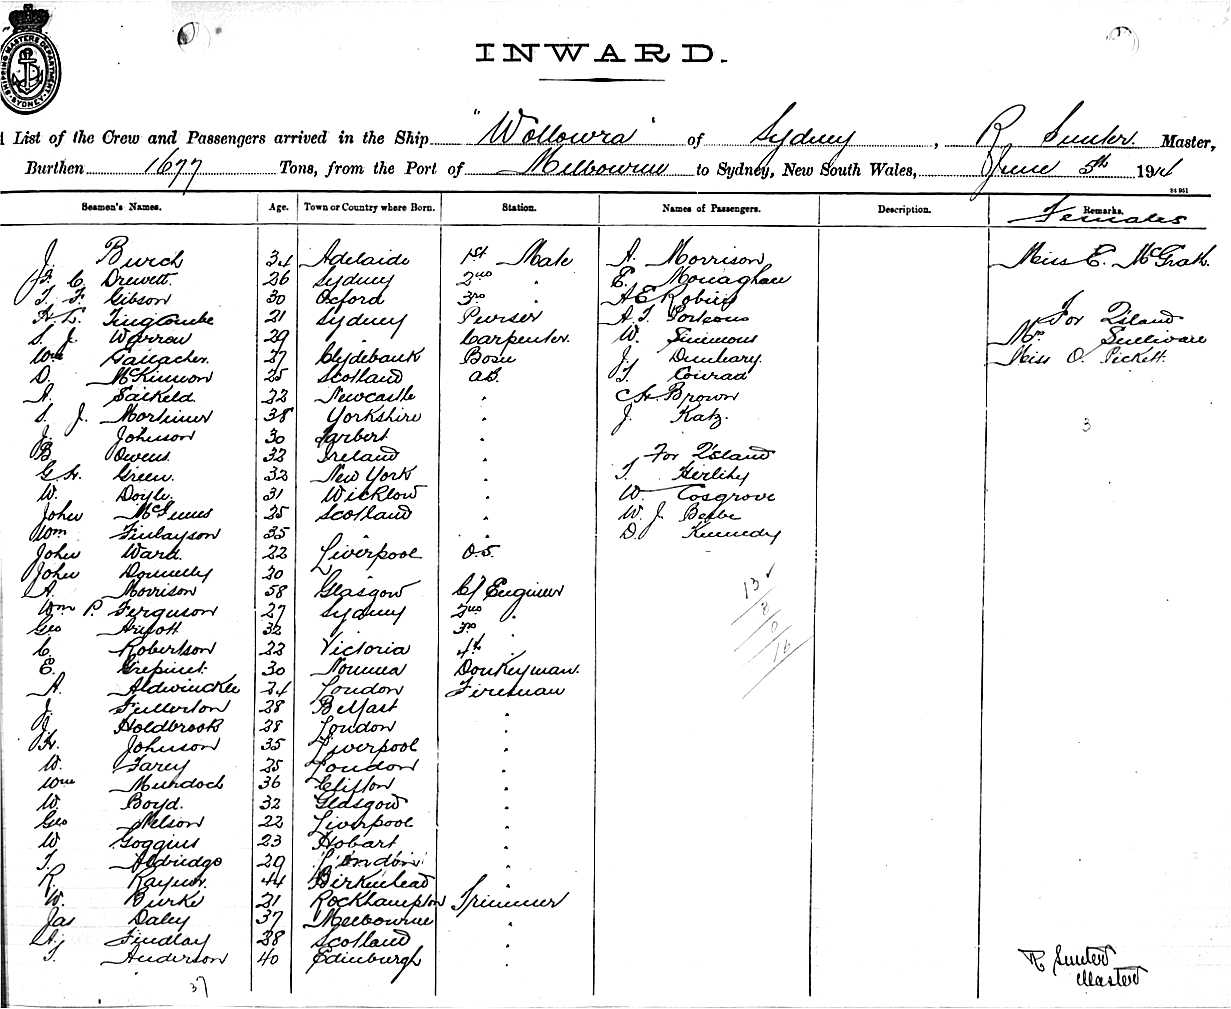 SHIPPING MASTERS DEPARTMENT SYDNEY
INWARD.
A List of the Crew and Passengers arrived in the Ship "Wollowra" of Sydney, R Sunter Master,
Burthen 1677 Tons, from the Port of Melbourne to Sydney, New South Wales, June 5th 191
Seamen's Names. Age. Town or Country where Born. Station. Names of Passengers. Description. Remarks.
Females
J. Burch 34 Adelaide 1st Mate A. Morrison Miss E. McGrath.
C Drewett. 26 Sydney 2nd " E. Monaghan
T. F. Gibson 30 Oxford 3rd " A E Robins
Tingcombe 21 Sydney Purser A. T. Porteous For Q'sland
S. J Warrow 29 " Carpenter. W. Simmons Sullivan
Wm Gallacher. 27 Clydebank Bosn J. Dunleavy. Miss O. Pickett.
D. McKinnon 25 Scotland A.B. T. Conrad
A. Saikeld 22 Newcastle " Brown
S. J. Mortimer 38 Yorkshire " J Katz.
3
J. Johnson 30 Tarbert "
B Owens. 32 Ireland " For Q'sland
G H. Green. 32 New York " T. Herlihy
W. Doyle. 31 Wicklow " W Cosgrove
John McInnes 25 Scotland " W. J
Wm Finlayson 35 " " D. Kennedy
John Ward. 22 Liverpool O.S.
John Donnelly 20 "
A. Morrison 58 Glasgow Cf Engineer
Wm P. Ferguson 27 Sydney 2nd "
Geo 32 " 3rd "
C. Robertson 22 Victoria 4th "
E. 30 Noumea Donkeyman.
A. Aldwinckle 24 London Fireman
J. Fullerton 28 Belfast "
J Holdbrook 28 London "
H. Johnson 35 Liverpool "
W. Farey 25 London "
Wm Murdoch 36 Clifton "
W. Boyd. 32 Glasgow "
Geo Nelson 22 Liverpool "
W Goggins 23 Hobart "
T. Aldridge 29 London "
R. Raynor. 44 Birkenhead "
W. Burke 21 Rockhampton Trimmer
Jas Daley 37 Melbourne "
A. Findlay 28 Scotland "
T. Anderson 40 Edinburgh "
37
13
16
R Sunter
Master